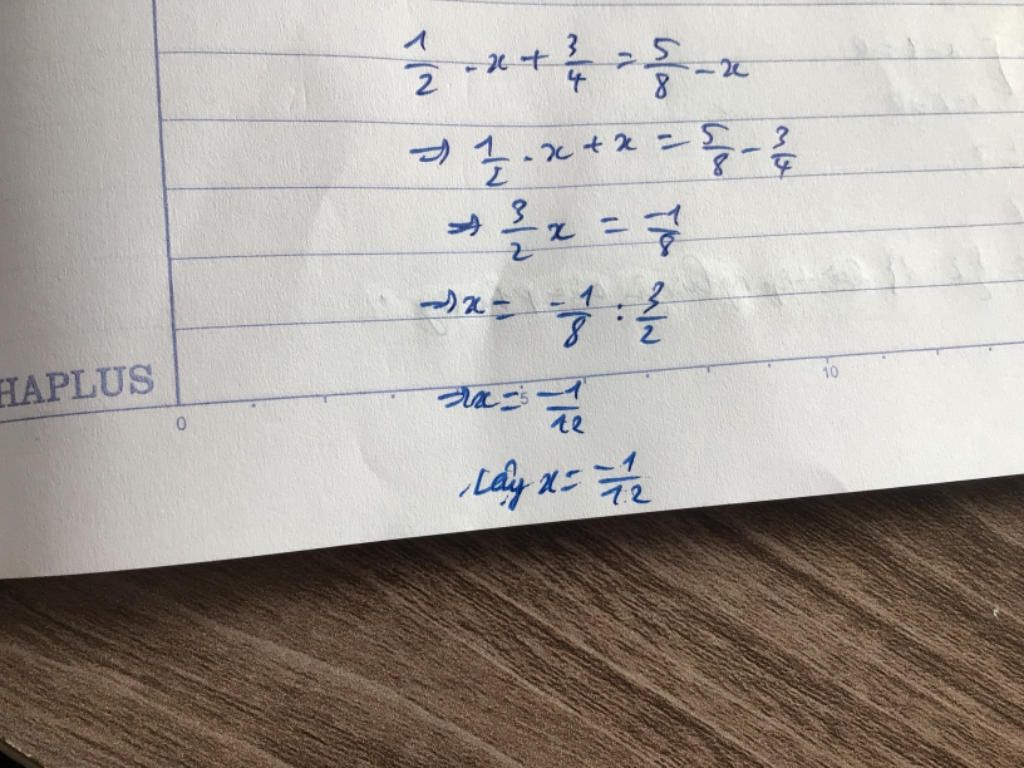 1/2 . x + 3/4 = 5/8 - x
=> 1/2 . x + x = 5/8 - 3/4
=> 3/2 x = -1/8
=> x = -1/8 : 3/2
HAPLUS
0 5 10
=> x = -1/12
Vậy x = -1/12